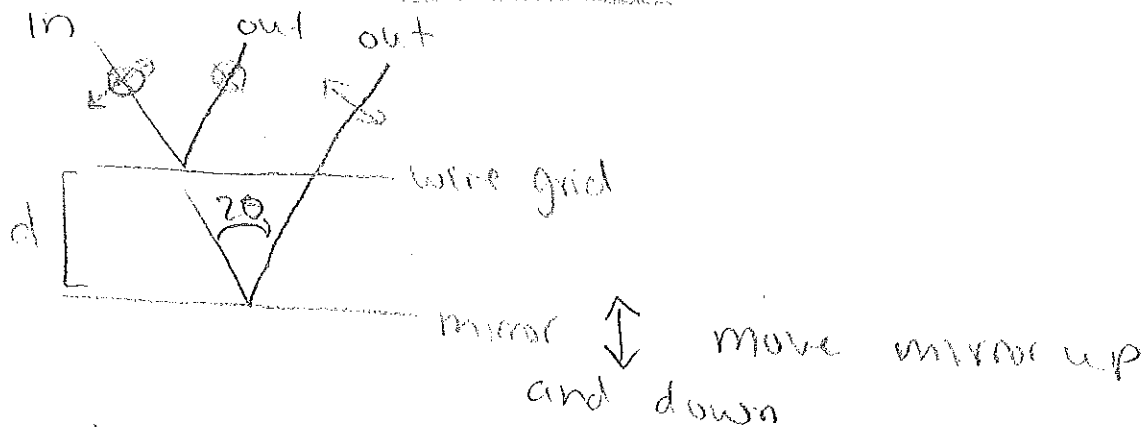 In out out
wire grid
2θ
d
mirror ↕ move mirror up
and down